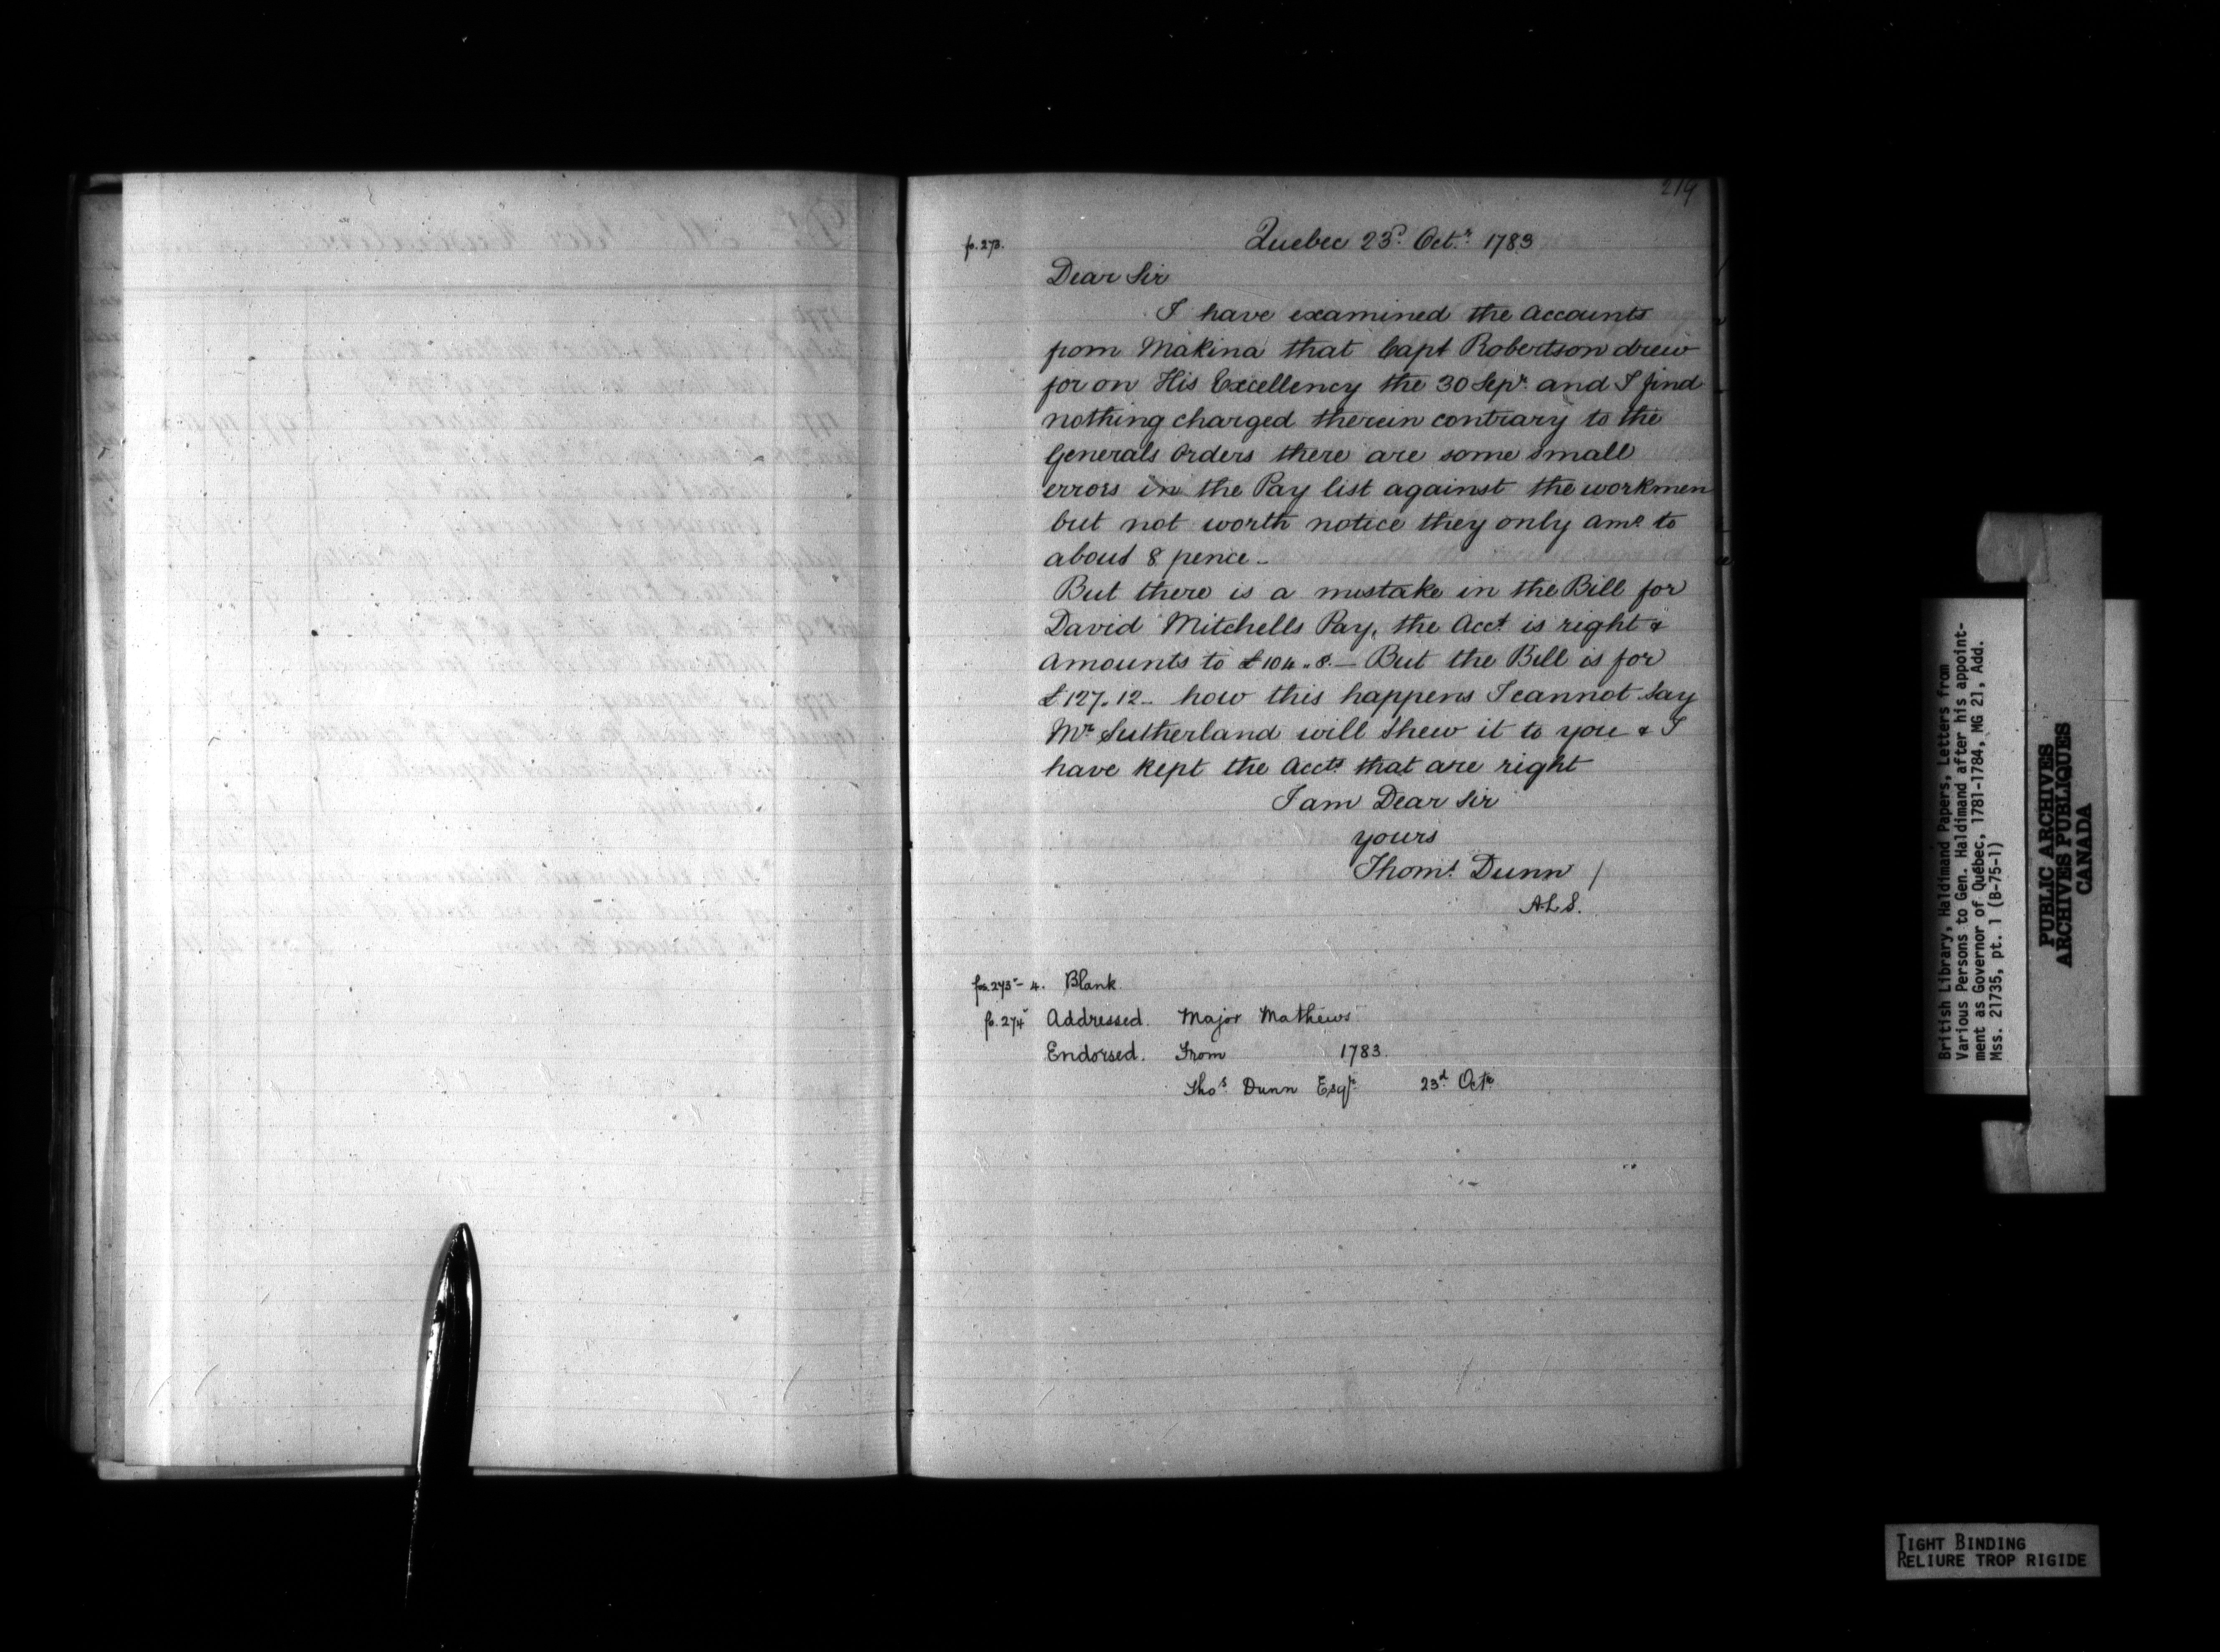 219
fo. 273.
Quebec 23d. Octr. 1783
Dear Sir
I have examined the Accounts
from Makina that Capt Robertson drew
for on His Excellency the 30 Sepr. and I find
nothing charged therein contrary to the
Generals Orders there are some small
errors in the Pay list against the workmen
but not worth notice they only amt. to
about 8 pence -
But there is a mistake in the Bill for
David Mitchells Pay, the Acct. is right &
amounts to £104.. 8. — But the Bill is for
£127. 12 - how this happens I cannot say
Mr. Sutherland will Shew it to you & I
have kept the Accts. that are right
I am Dear Sir
yours
Thoms. Dunn /
A.L.S.
fos. 273v - 4. Blank.
fo. 274v Addressed. Major Mathews
Endorsed. From 1783.
Thos. Dunn Esqr. 23d. Octr.
British Library, Haldimand Papers, Letters from
Various Persons to Gen. Haldimand after his appoint-
ment as Governor of Québec, 1781-1784, MG 21, Add.
Mss. 21735, pt. 1 (B-75-1)
PUBLIC ARCHIVES
ARCHIVES PUBLIQUES
CANADA
TIGHT BINDING
RELIURE TROP RIGIDE